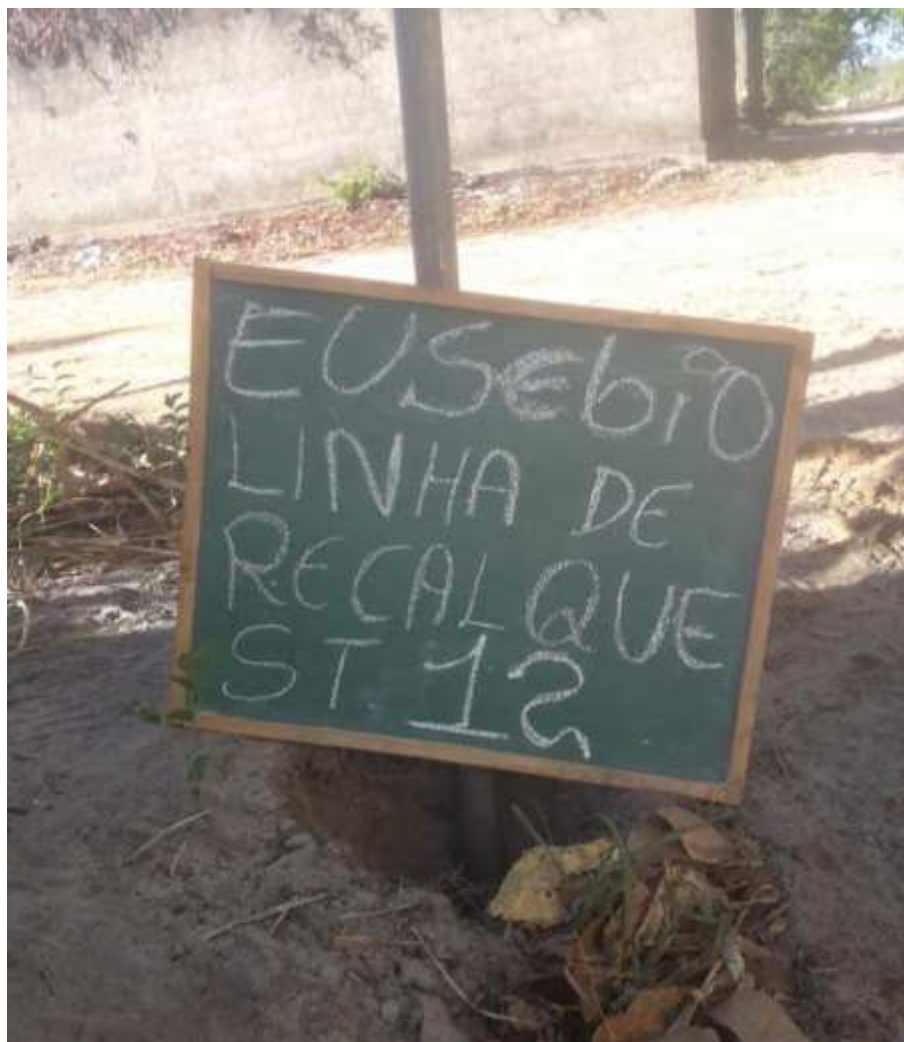 EUSEbiO
LINHA DE
RECALQUE
ST 12